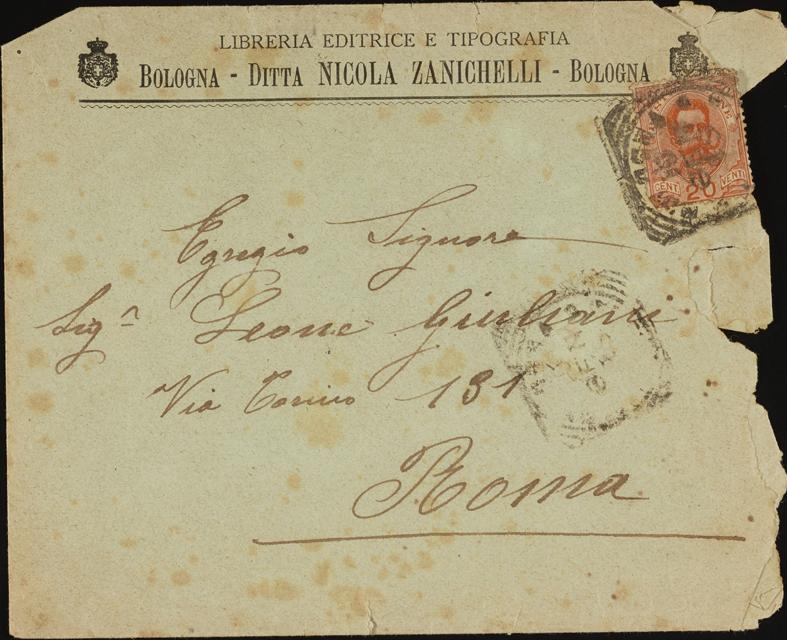 LIBRERIA EDITRICE E TIPOGRAFIA
BOLOGNA - DITTA NICOLA ZANICHELLI - BOLOGNA
CENT. 20 VENTI
Egregio Signore
Sigr Leone Giuliani
Via Torino 131
Roma